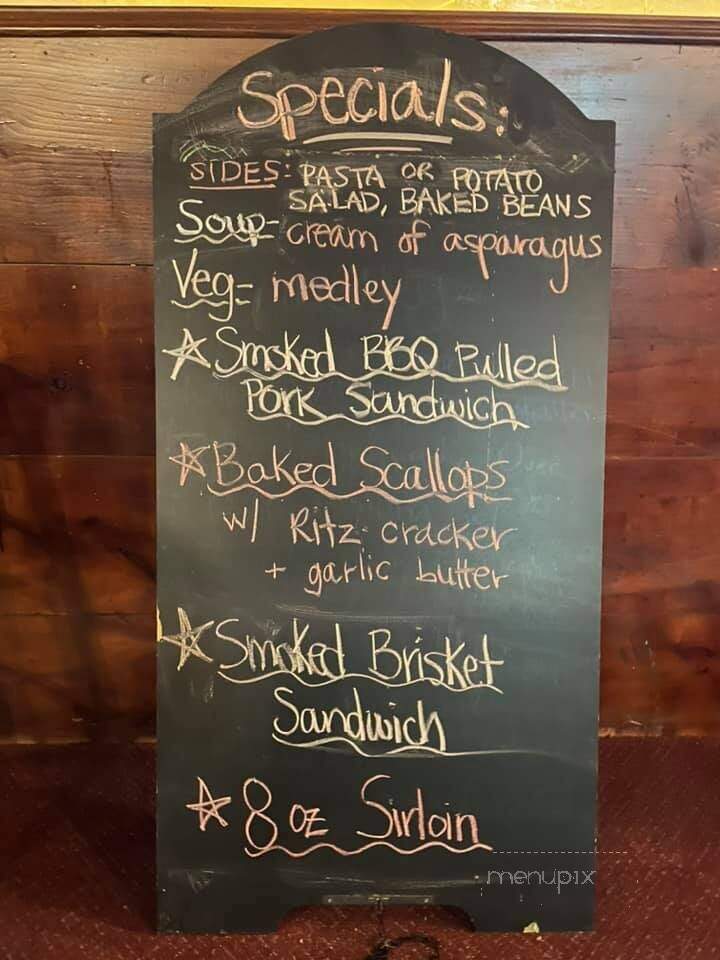 Specials:
SIDES: PASTA OR POTATO
SALAD, BAKED BEANS
Soup- cream of asparagus
Veg- medley
☆ Smoked BBQ Pulled
Pork Sandwich
☆ Baked Scallops
w/ Ritz cracker
+ garlic butter
☆ Smoked Brisket
Sandwich
☆ 8 oz Sirloin
menupix